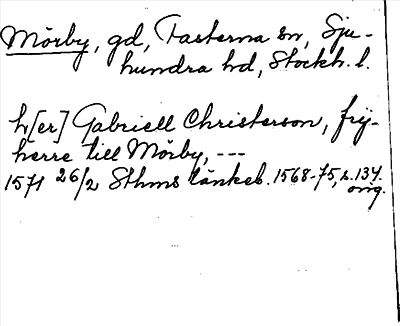 Mörby, gd, Fasterna sn, Sju-
hundra hd, Stockh. l.
h[er] Gabriell Christerson, frij-
herre till Mörby, ---
1571 26/2 Sthms tänkeb. 1568-75, s. 134.
orig.